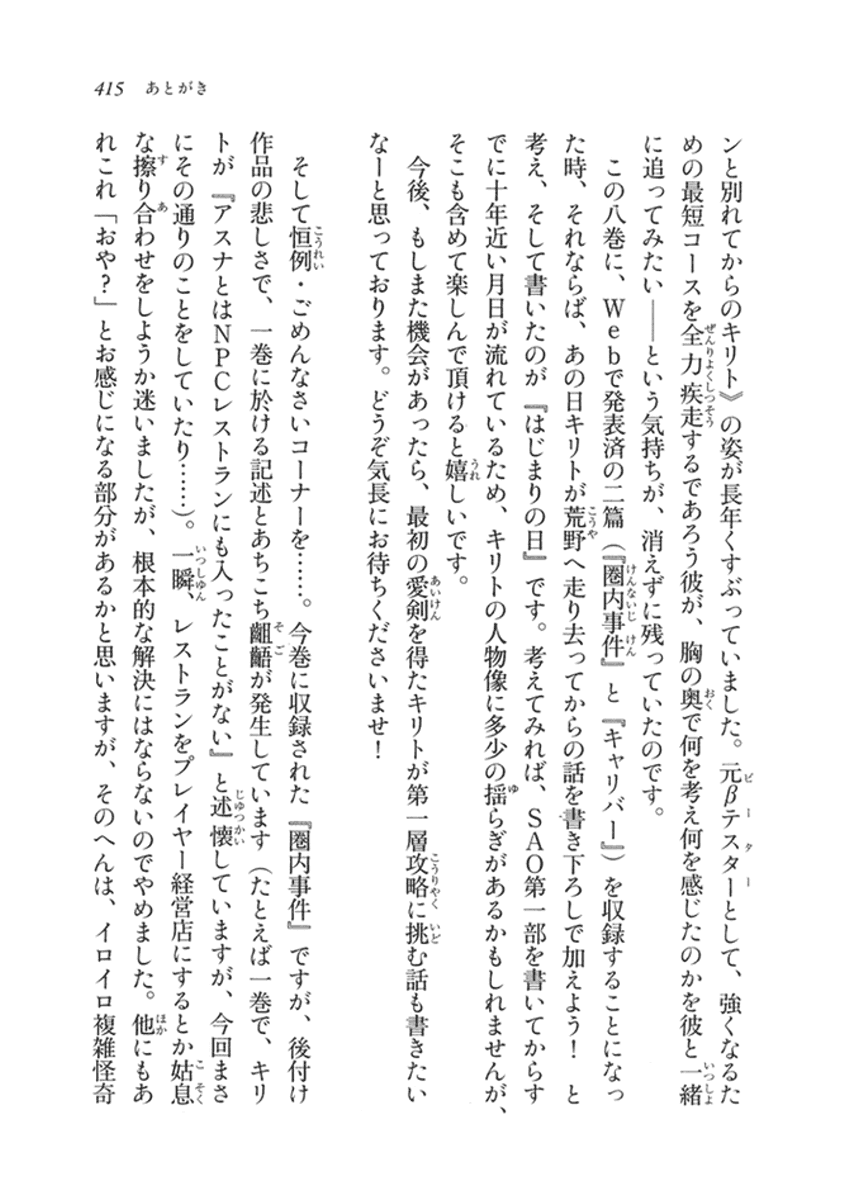 415 あとがき
ンと別れてからのキリト》の姿が長年くすぶっていました。元βテスターとして、強くなるた
めの最短コースを全力疾走するであろう彼が、胸の奥で何を考え何を感じたのかを彼と一緒
に追ってみたい――という気持ちが、消えずに残っていたのです。
この八巻に、Webで発表済の二篇（『圏内事件』と『キャリバー』）を収録することになっ
た時、それならば、あの日キリトが荒野へ走り去ってからの話を書き下ろしで加えよう！　と
考え、そして書いたのが『はじまりの日』です。考えてみれば、SAO第一部を書いてからす
でに十年近い月日が流れているため、キリトの人物像に多少の揺らぎがあるかもしれませんが、
そこも含めて楽しんで頂けると嬉しいです。
今後、もしまた機会があったら、最初の愛剣を得たキリトが第一層攻略に挑む話も書きたい
なーと思っております。どうぞ気長にお待ちくださいませ！
そして恒例・ごめんなさいコーナーを……。今巻に収録された『圏内事件』ですが、後付け
作品の悲しさで、一巻に於ける記述とあちこち齟齬が発生しています（たとえば一巻で、キリ
トが『アスナとはNPCレストランにも入ったことがない』と述懐していますが、今回まさ
にその通りのことをしていたり……）。一瞬、レストランをプレイヤー経営店にするとか姑息
な擦り合わせをしようか迷いましたが、根本的な解決にはならないのでやめました。他にもあ
れこれ「おや？」とお感じになる部分があるかと思いますが、そのへんは、イロイロ複雑怪奇